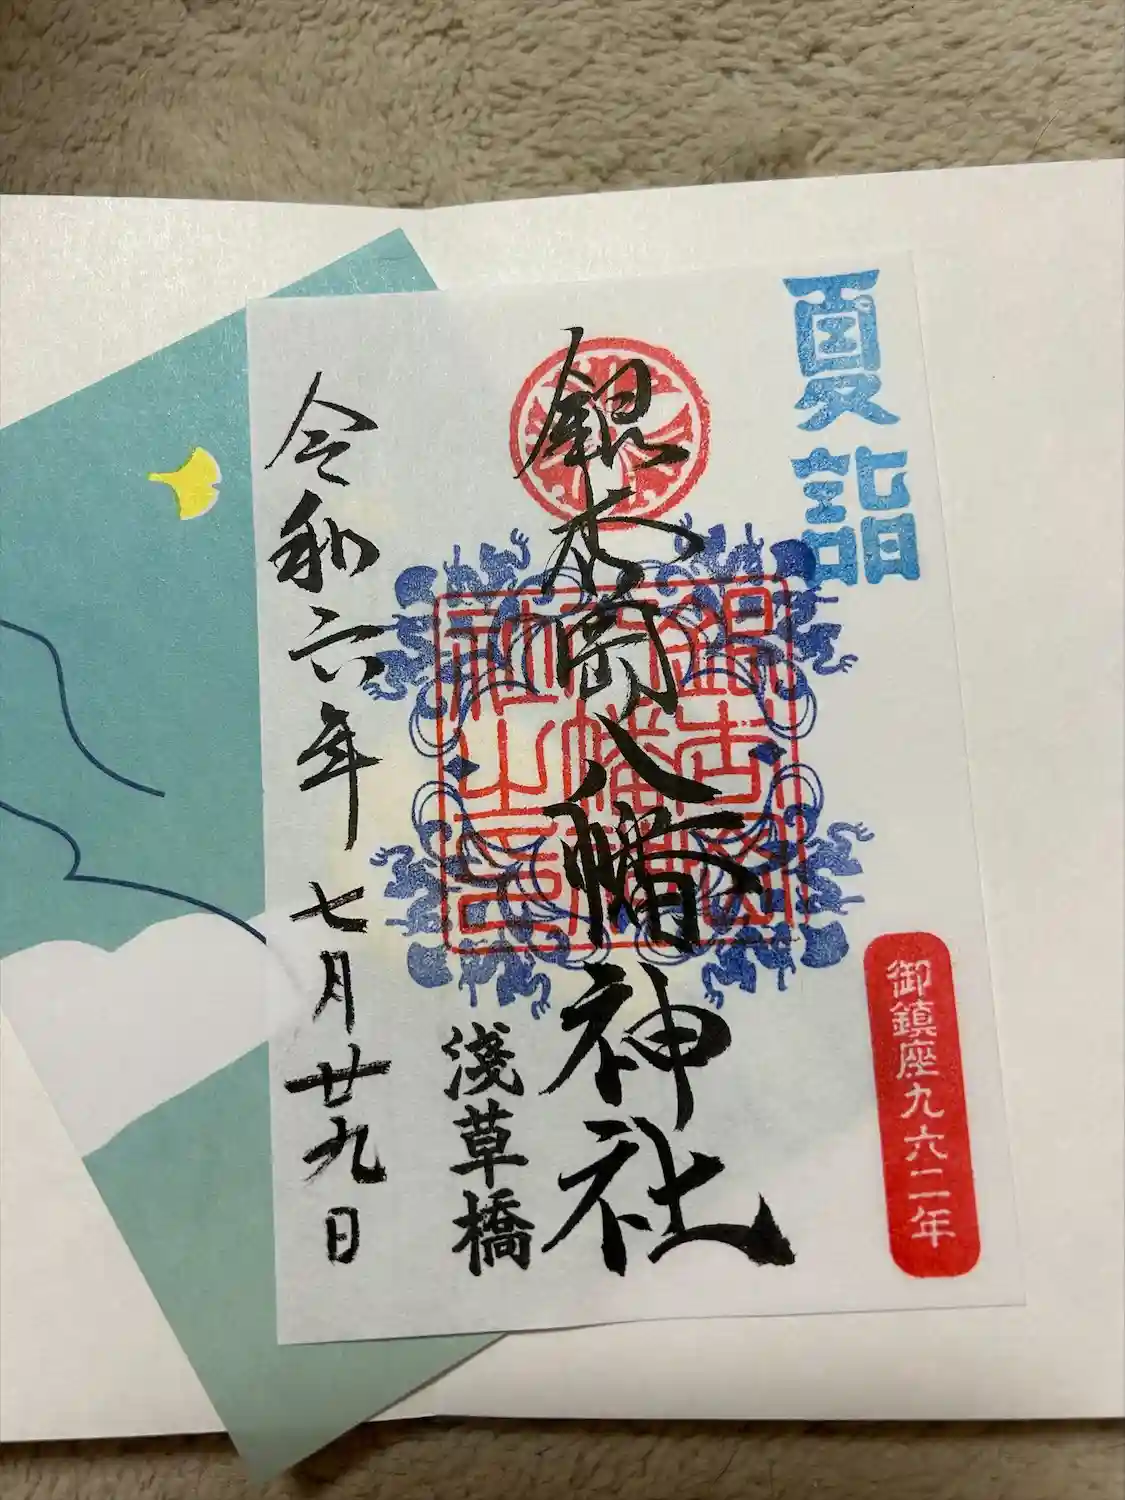 夏詣
御鎮座九六二年
銀杏岡八幡神社
銀杏岡
八幡神
社之印
淺草橋
令和六年 七月廿九日